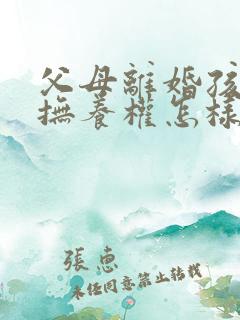 父母離婚孩
撫養權怎樣
張惠
未經同意禁止轉載